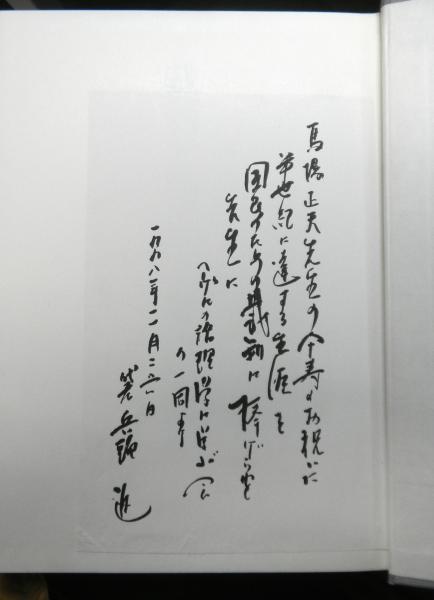 馬場正夫先生の傘寿のお祝いに
半世紀に達する生涯を
国民のための裁判に捧げられた
先生に
へ の論理学に学ぶ会
の一同より
一九九八年一一月二六日
兵頭 進